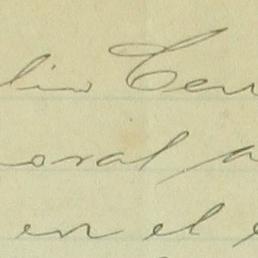 lio Cer
oral a
en el e